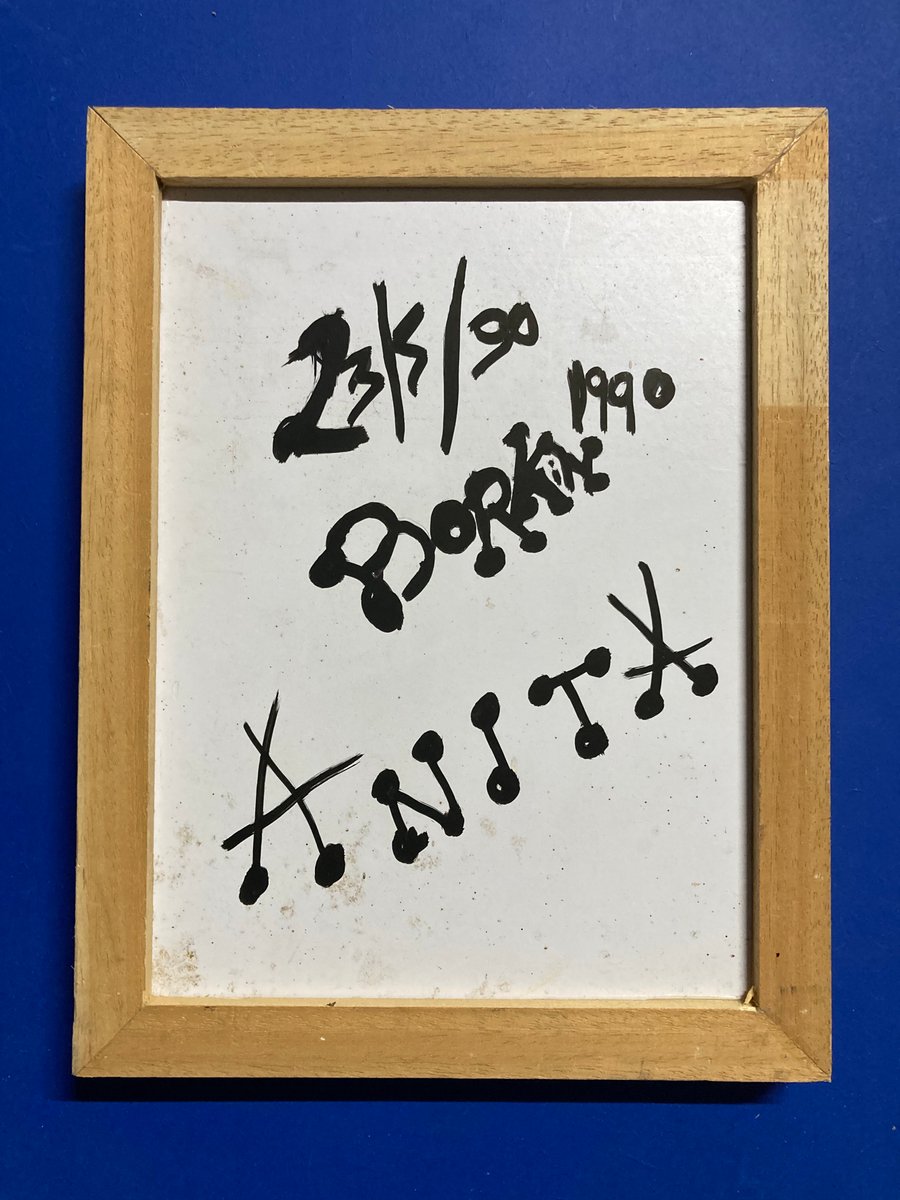 23K/90
1990
BORKIN
ANITA